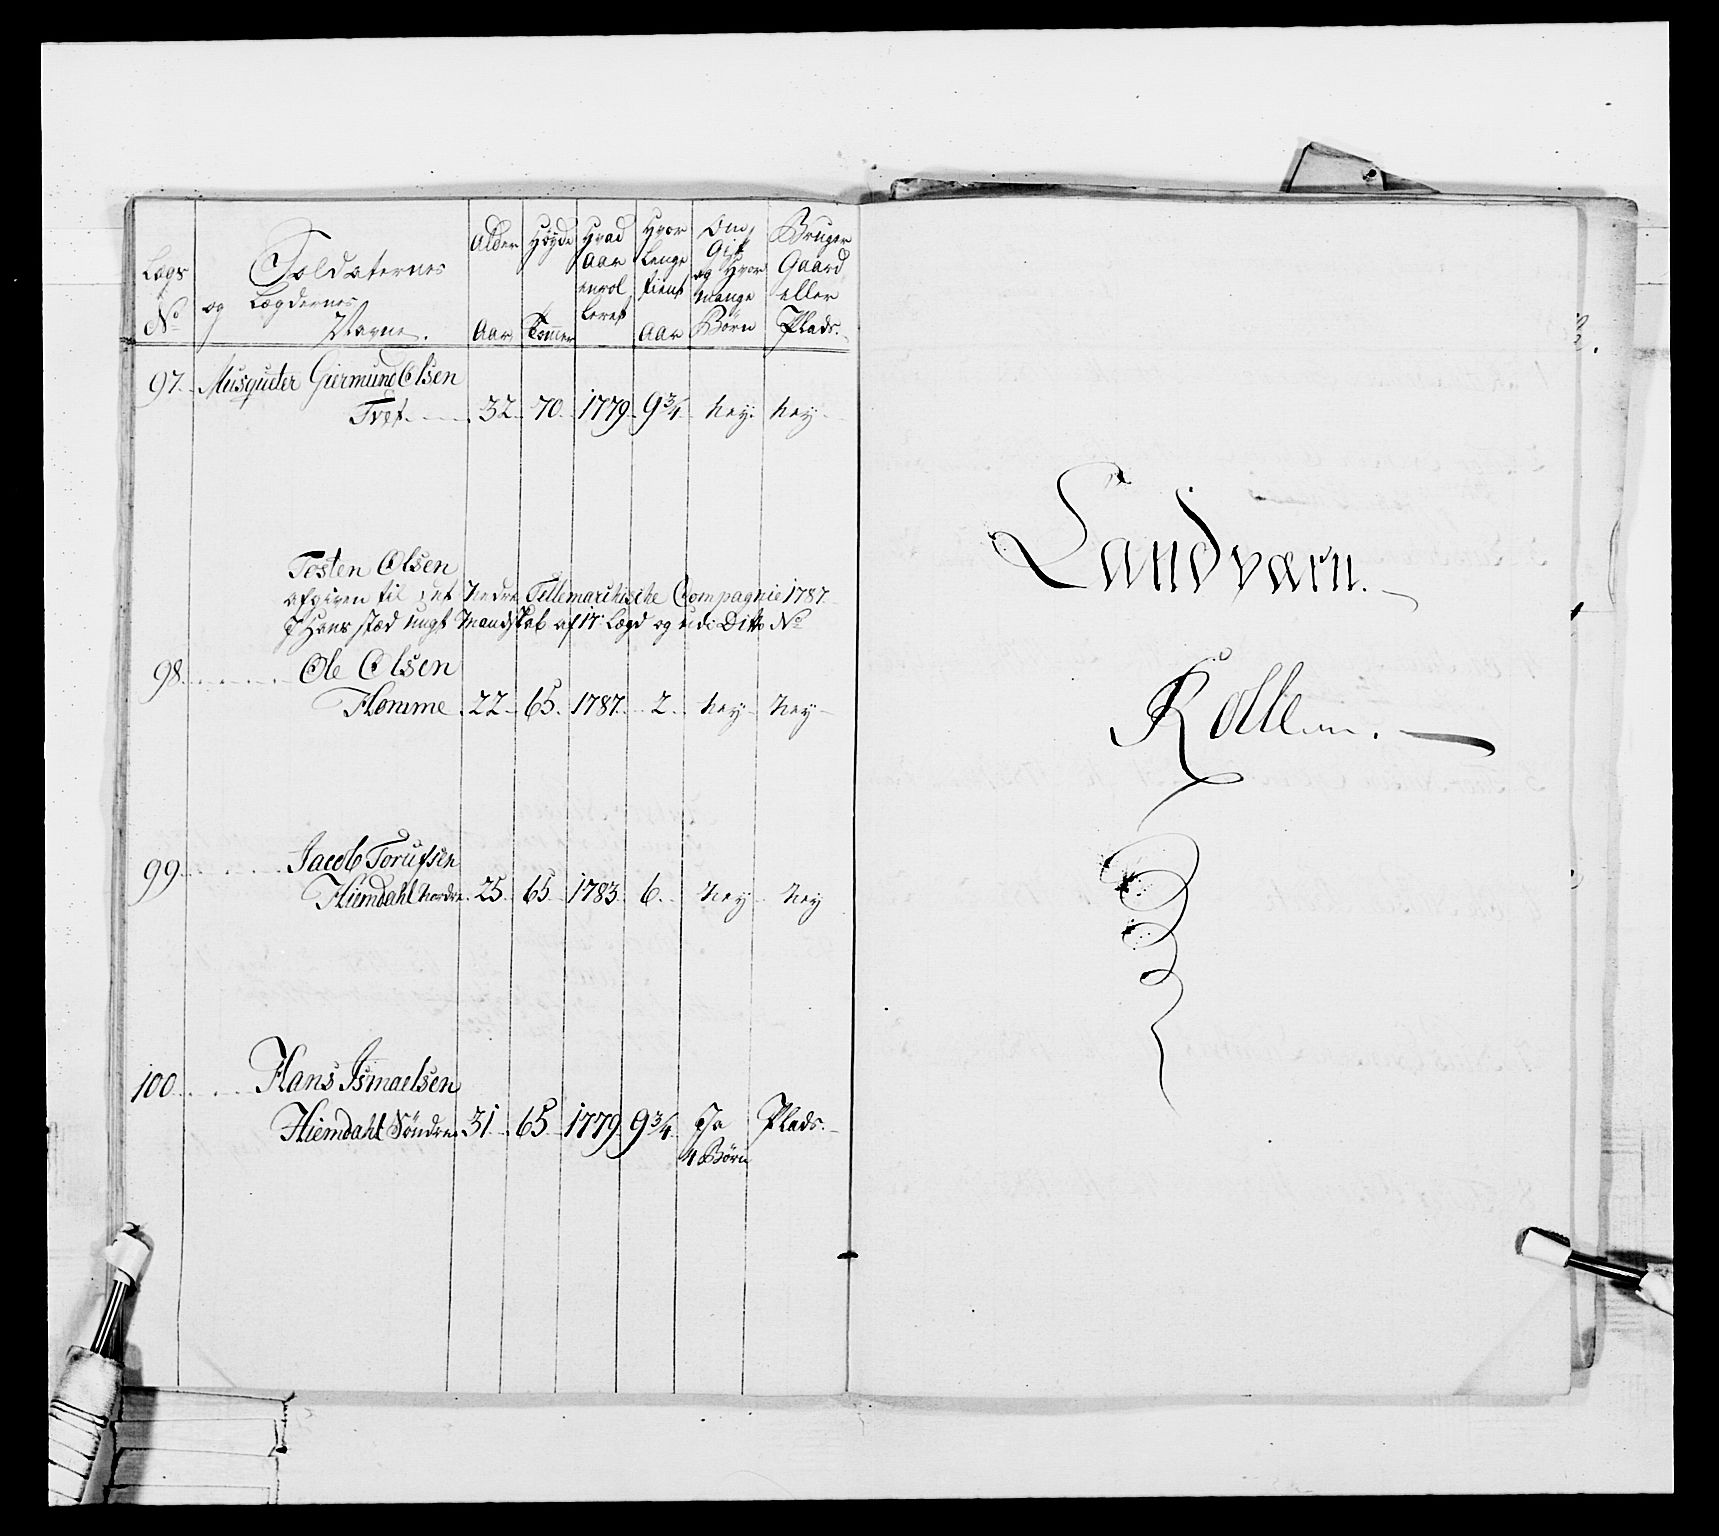 Lægs No
Soldaternes
og Lægdernes
Navne.
Alder Aar
Høyde Tommer
Hvad Aar enrolleret
Hvor Lenge tient Aar
Om Gift og Hvor mange Børn
Bruger Gaard eller Plads.
97. Musqueter Giermund Olsen
Tvet 32 70 1779 9 3/4 Ney. Ney
Tosten Olsen
afgiven til det Nedre Tellemarchische Compagnie 1787.
I Hans stæd ungt Mandskab af 17 Lægd og udi Ditto No
98. Ole Olsen
Homme 22 65. 1787. 2. Ney Ney
99. Jacob Torufsen
Hiemdahl Nordre 25 65. 1783. 6. Ney Ney
100. Hans Ismaelsen
Hiemdahl Søndre 31 65 1779 9 3/4 Ja Plads.
4 Børn
Landværn.
Rollen.